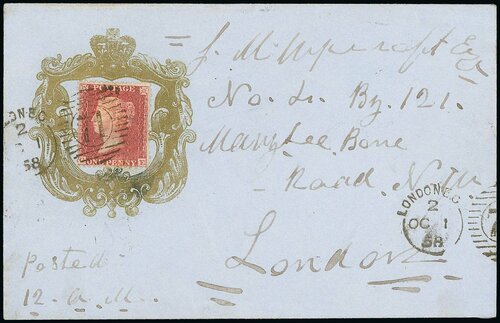 POSTAGE
ONE PENNY
LONDON E.C.
2
58
No. 4. By. 121.
Marylee Bone
Road N.W
London
LONDON E.C.
2
OC 1
58
Posted
12. a. M.